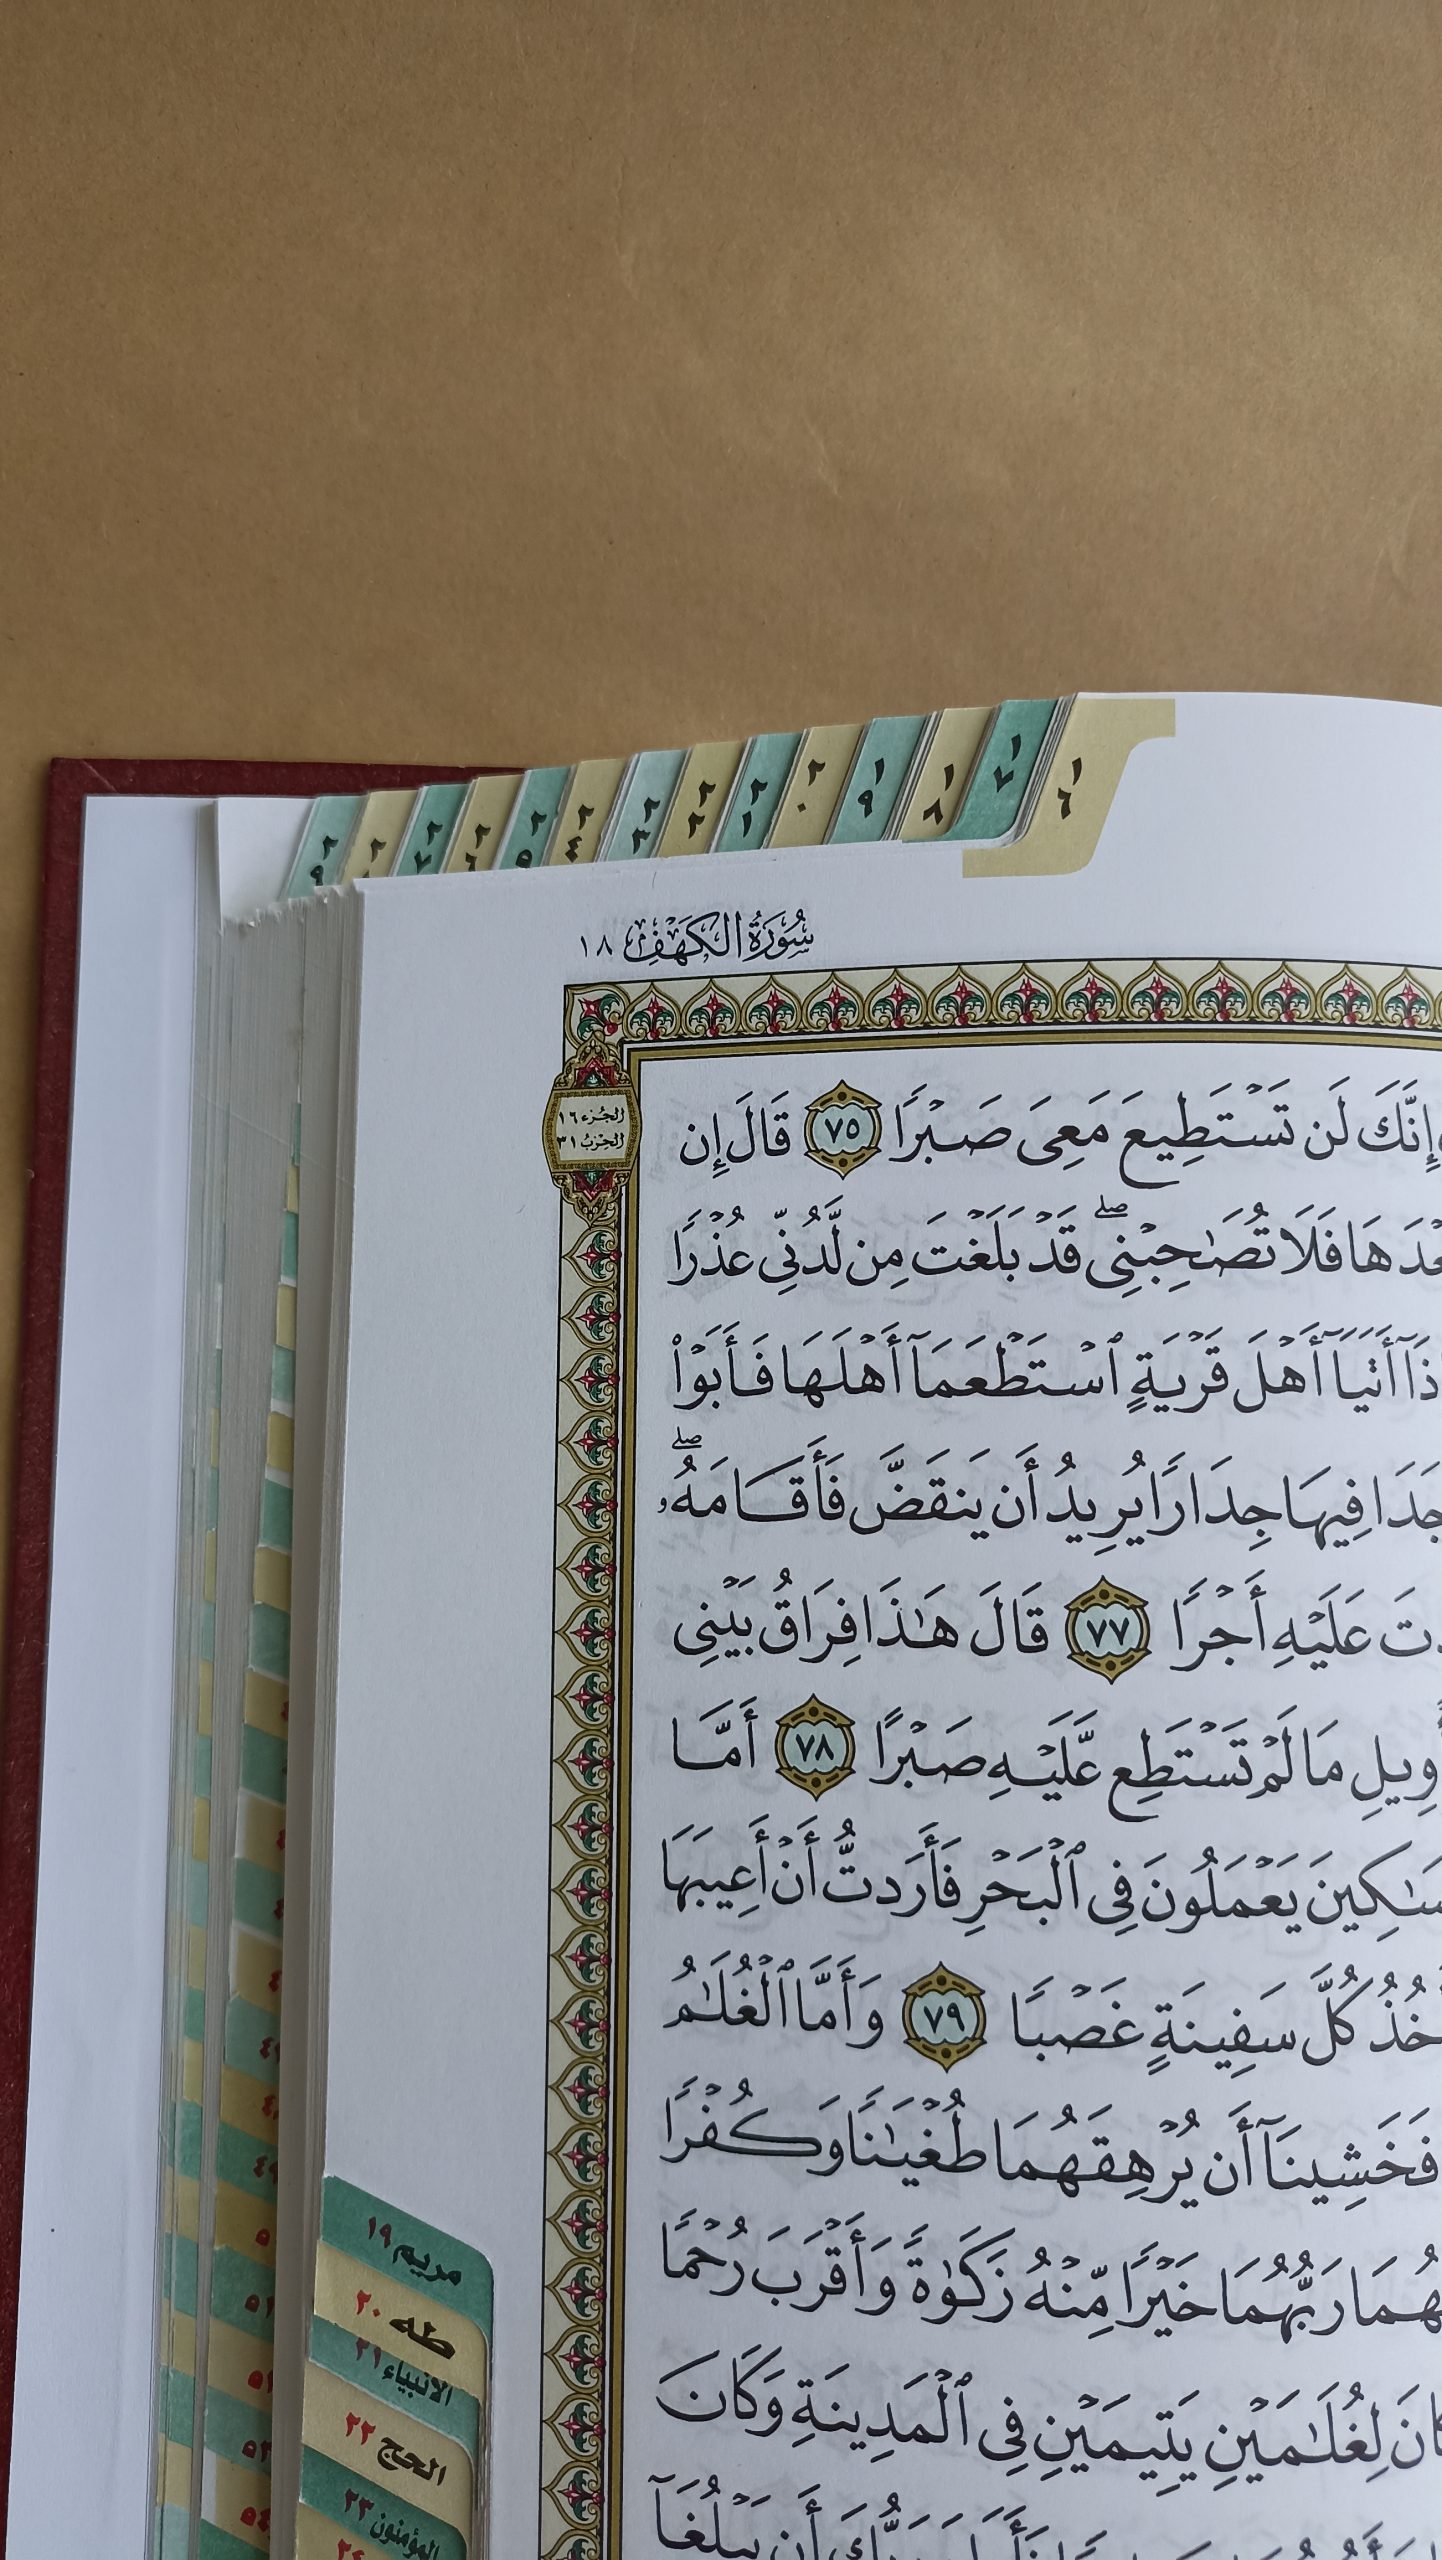 ١٦
١٧
١٨
١٩
٢٠
٢١
٢٢
٢٣
٢٤
٢٥
٢٦
٢٧
٢٩
سُورَةُ الكَهْفِ ١٨
الجُزء ١٦
الحِزبُ ٣١
إِنَّكَ لَن تَسْتَطِيعَ مَعِىَ صَبْرًا ٧٥ قَالَ إِن
هَا فَلَا تُصَٰحِبْنِى ۖ قَدْ بَلَغْتَ مِن لَّدُنِّى عُذْرًا
أَتَيَآ أَهْلَ قَرْيَةٍ ٱسْتَطْعَمَآ أَهْلَهَا فَأَبَوْا۟
فِيهَا جِدَارًا يُرِيدُ أَن يَنقَضَّ فَأَقَامَهُۥ ۖ
عَلَيْهِ أَجْرًا ٧٧ قَالَ هَٰذَا فِرَاقُ بَيْنِى
مَا لَمْ تَسْتَطِع عَّلَيْهِ صَبْرًا ٧٨ أَمَّا
يَعْمَلُونَ فِى ٱلْبَحْرِ فَأَرَدتُّ أَنْ أَعِيبَهَا
كُلَّ سَفِينَةٍ غَصْبًا ٧٩ وَأَمَّا ٱلْغُلَٰمُ
فَخَشِينَآ أَن يُرْهِقَهُمَا طُغْيَٰنًا وَكُفْرًا
رَبُّهُمَا خَيْرًا مِّنْهُ زَكَوٰةً وَأَقْرَبَ رُحْمًا
لِغُلَٰمَيْنِ يَتِيمَيْنِ فِى ٱلْمَدِينَةِ وَكَانَ
أَن يَبْلُغَآ
مريم ١٩
طه ٢٠
الانبياء ٢١
الحج ٢٢
المؤمنون ٢٣
٢٤